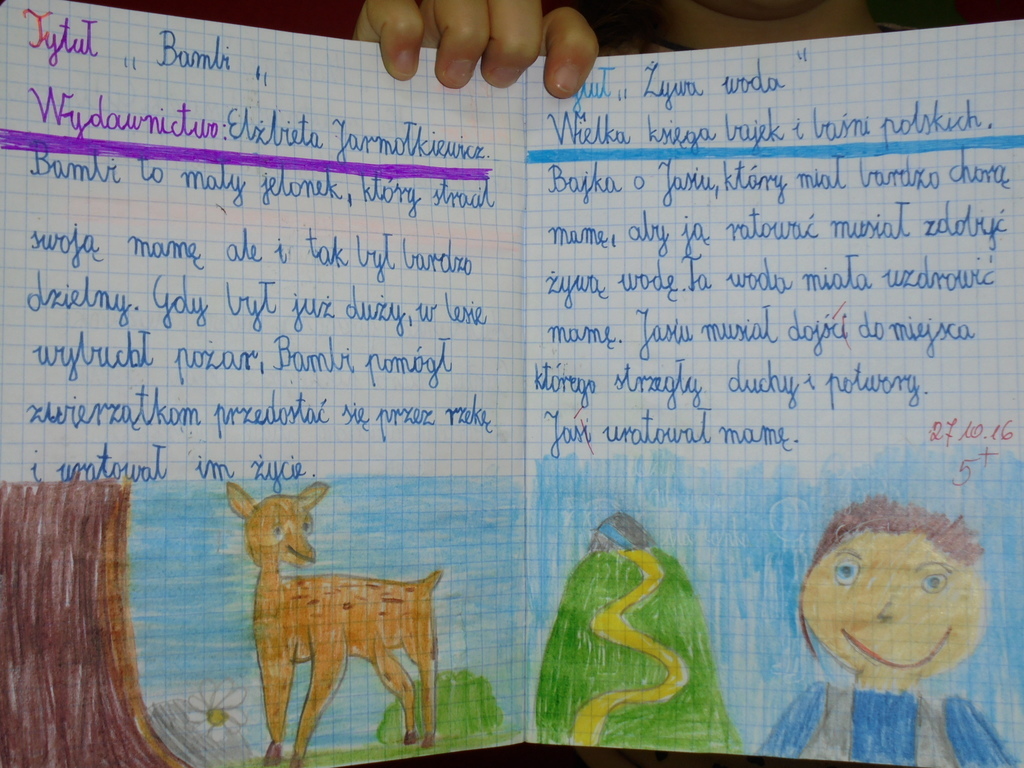 Tytuł „ Bambi „
Wydawnictwo: Elżbieta Jarmołkiewicz.
Bambi to mały jelonek, który stracił
swoją mamę ale i tak był bardzo
dzielny. Gdy był już duży, w lesie
wybuchł pożar, Bambi pomógł
zwierzątkom przedostać się przez rzekę
i uratował im życie.
„ Żywa woda "
Wielka księga bajek i baśni polskich.
Bajka o Jasiu, który miał bardzo chorą
mamę, aby ją ratować musiał zdobyć
żywą wodę. Ta woda miała uzdrowić
mamę. Jasiu musiał dojść do miejsca
którego strzegły duchy i potwory.
Jaś uratował mamę.
27.10.16
5+